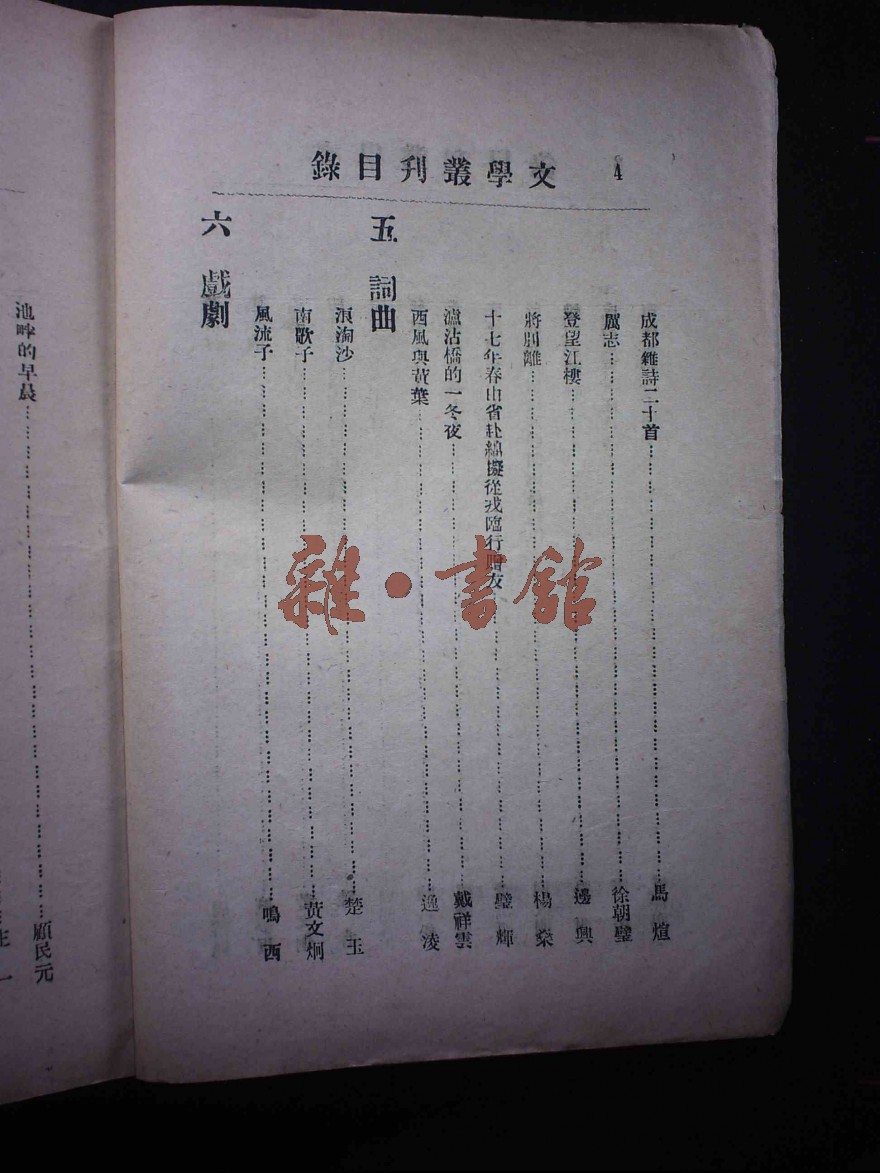 文學叢刊目錄
4
成都雜詩二十首 馬煊
厲志 徐朝璧
登望江樓 邊興
將別離 楊燊
十七年春由省赴綿擬從戎臨行贈友 璧輝
瀘沽橋的一冬夜 戴祥雲
西風與黃葉 逸凌
五 詞曲
浪淘沙 楚玉
南歌子 黃文炯
風流子 鳴西
六 戲劇
池畔的早晨 顧民元
雜·書館